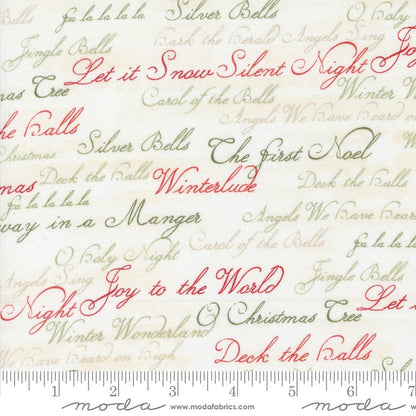 fa la la la la Silver Bells O Holy
Jingle Bells Hark the Herald Angels Sing
Let it Snow Silent Night Joy
mas Tree Carol of the Bells Winter W
the Halls Angels We Have Heard on
Christmas Silver Bells The First Noel
mas Deck the Halls Winterlude Deck the Halls
fa la la la la
way in a Manger Angels We Have Heard
O Holy Night Carol of the Bells fa la la la la
Angels Sing Joy to the World Jingle Bells
Night O Christmas Tree Let it
Winter Wonderland
We Have Heard on High Deck the Halls
1 2 3 4 5 6 7
moda www.modafabrics.com moda